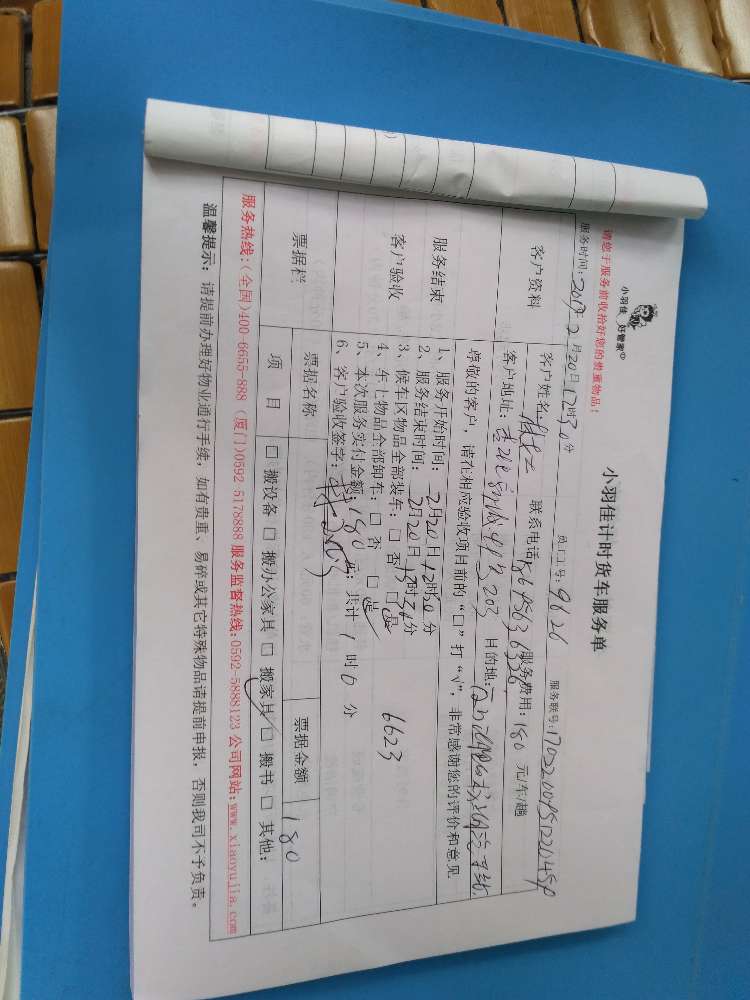 小羽佳 好管家®
小羽佳计时货车服务单
请您于服务前收拾好您的贵重物品!
服务时间: 2017年2月20日12时30分 员工工号: 9626 服务联号:
客户资料
客户姓名: 联系电话: 服务费用: 180 元/车/趟
客户地址: 目的地:
尊敬的客户, 请在相应验收项目前的“□”打“√”, 非常感谢您的评价和意见
服务结束
客户验收
1、服务开始时间: 2月20日12时30分
2、服务结束时间: 2月20日13时36分
3、候车区物品全部装车: □ 否 □ 是
4、车上物品全部卸车: □ 否 □ 是
5、本次服务实付金额: 180 元; 共计 1 时 6 分
6、客户验收签字:
6623
票据栏
票据名称 票据金额 180
项 目 □ 搬设备 □ 搬办公家具 □ 搬家具 □ 搬书 □ 其他:
服务热线: (全国)400-6655-888 (厦门)0592-5178888 服务监督热线: 0592-5888123 公司网站: www.xiaoyujia.com
温馨提示: 请提前办理好物业通行手续, 如有贵重、易碎或其它特殊物品请提前申报, 否则我司不予负责。